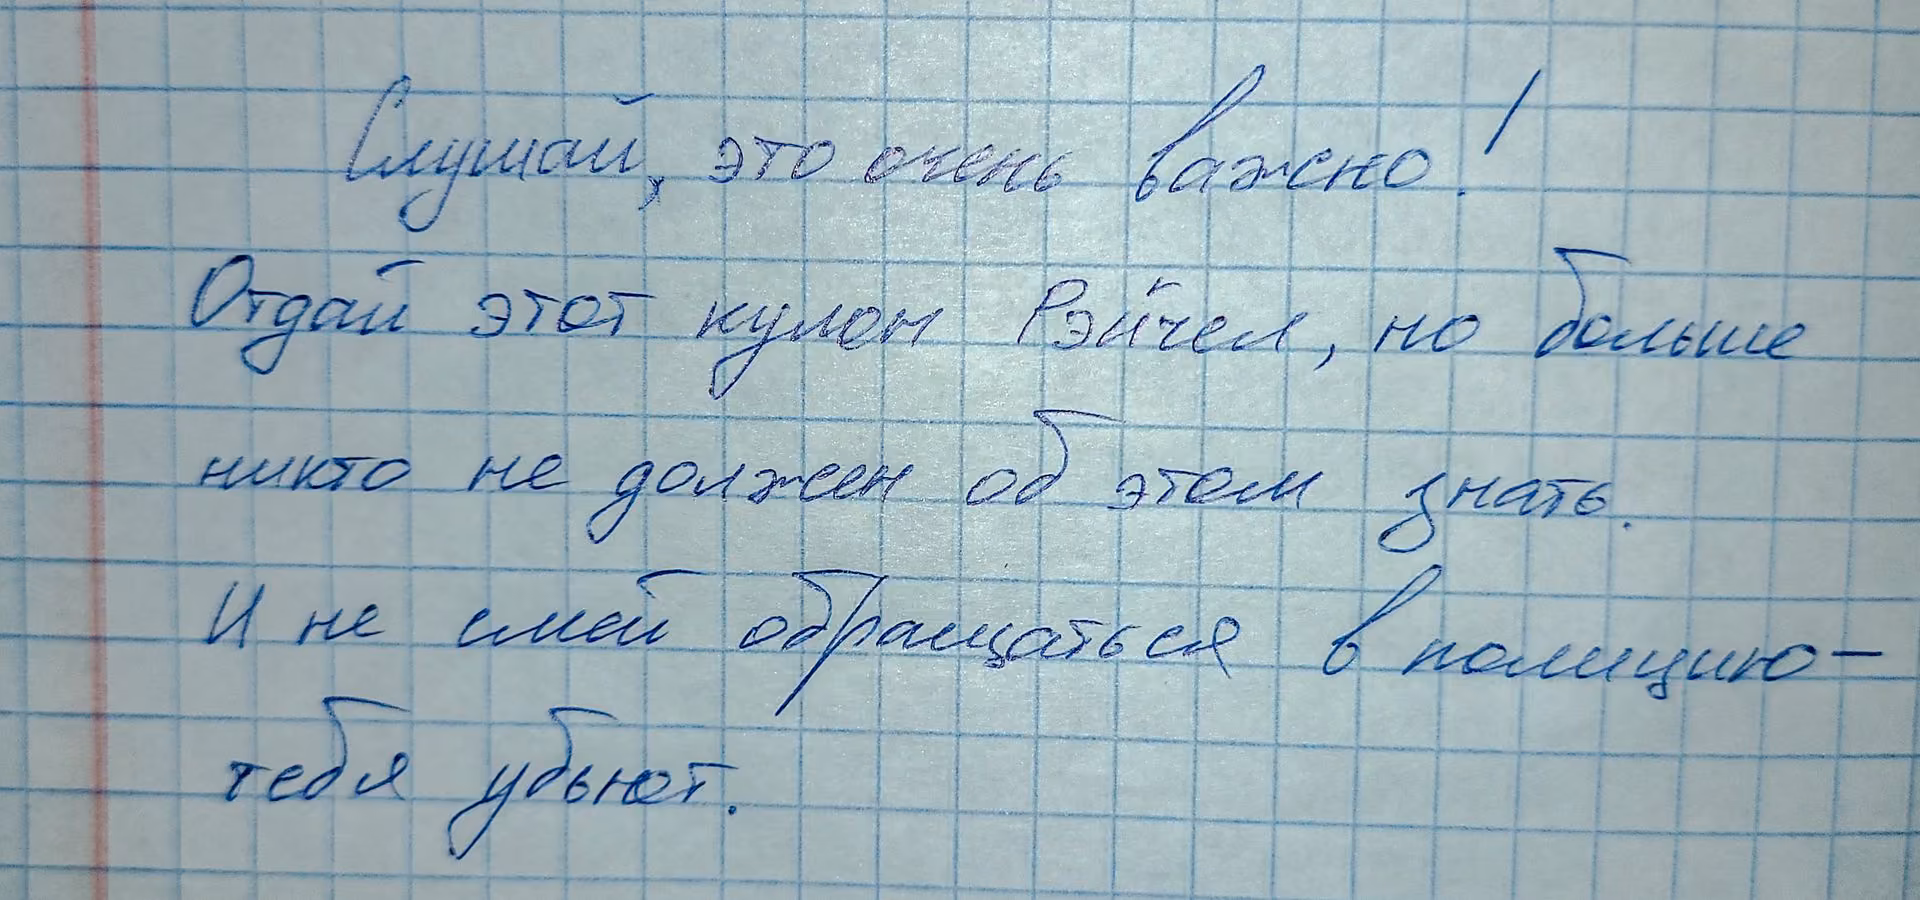 Слушай, это очень важно!
Отдай этот кулон Рэйчел, но больше
никто не должен об этом знать.
И не смей обращаться в полицию -
тебя убьют.